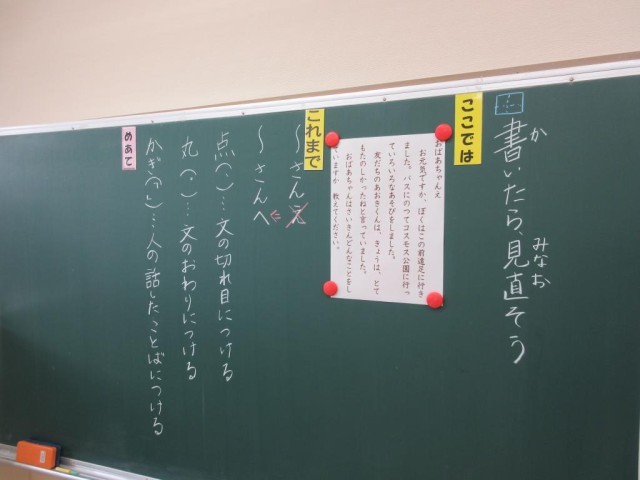 書いたら、見直そう
か みなお
ここでは
おばあちゃんえ
お元気ですか、ぼくはこの前遠足に行き
ました。バスにのつてコスモス公園に行っ
ていろいろなあそびをしました。
友だちのあおきくんは、きょうは、とて
もたのしかったねと言っていました。
おばあちゃんはさいきんどんなことをし
ていますか 教えてください。
これまで
〜さんえ
〜さんへ
点(、)…文の切れ目につける
丸(。)…文のおわりにつける
かぎ(「」)…人の話したことばにつける
めあて